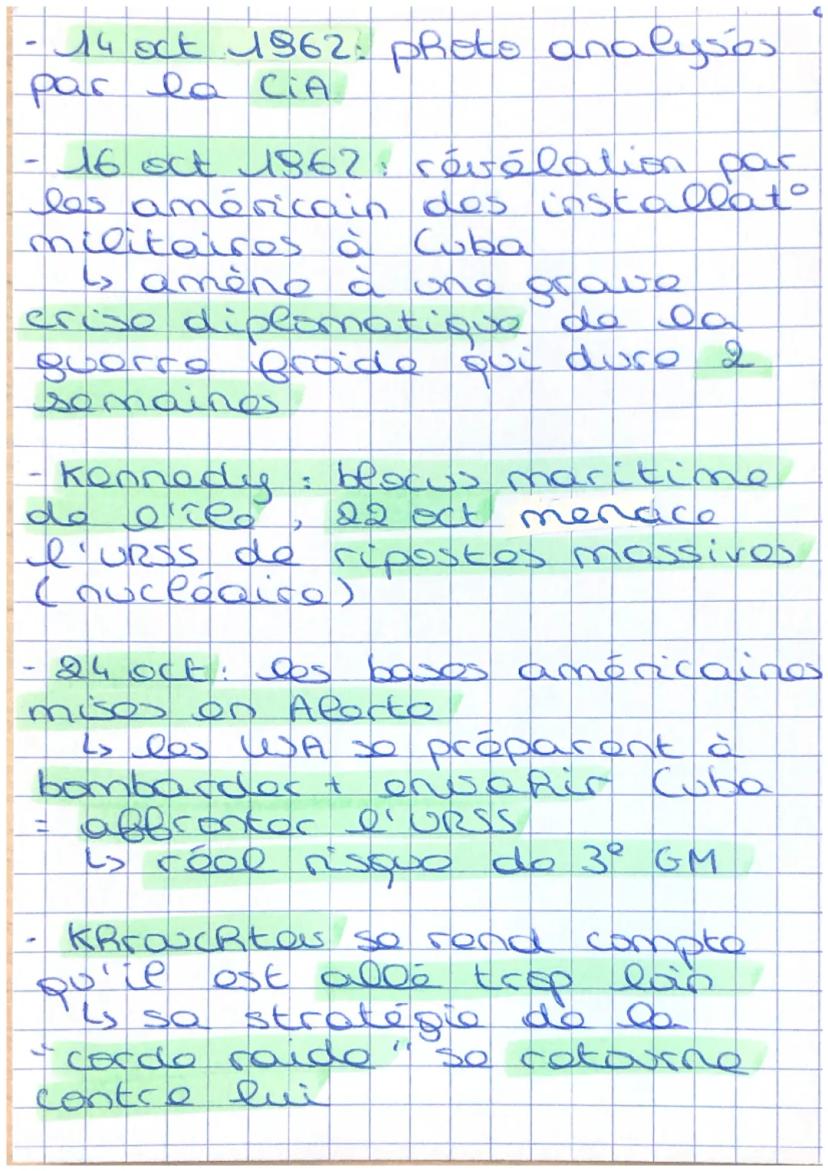 - 14 oct 1962: photo analysés
par la CiA
- 16 oct 1962: révélation par
les américain des installat°
militaires à Cuba
↳ amène à une grave
crise diplomatique de la
guerre froide qui dure 2
semaines
- Kennedy : blocus maritime
de l'île, 22 oct menace
l'URSS de ripostes massives
(nucléaire)
- 24 oct: les bases américaines
mises en Alerte
↳ les USA se préparent à
bombarder + envahir Cuba
= affronter l'URSS
↳ réel risque de 3e GM
- Khrouchtev se rend compte
qu'il est allé trop loin
↳ sa stratégie de la
"corde raide" se retourne
contre lui